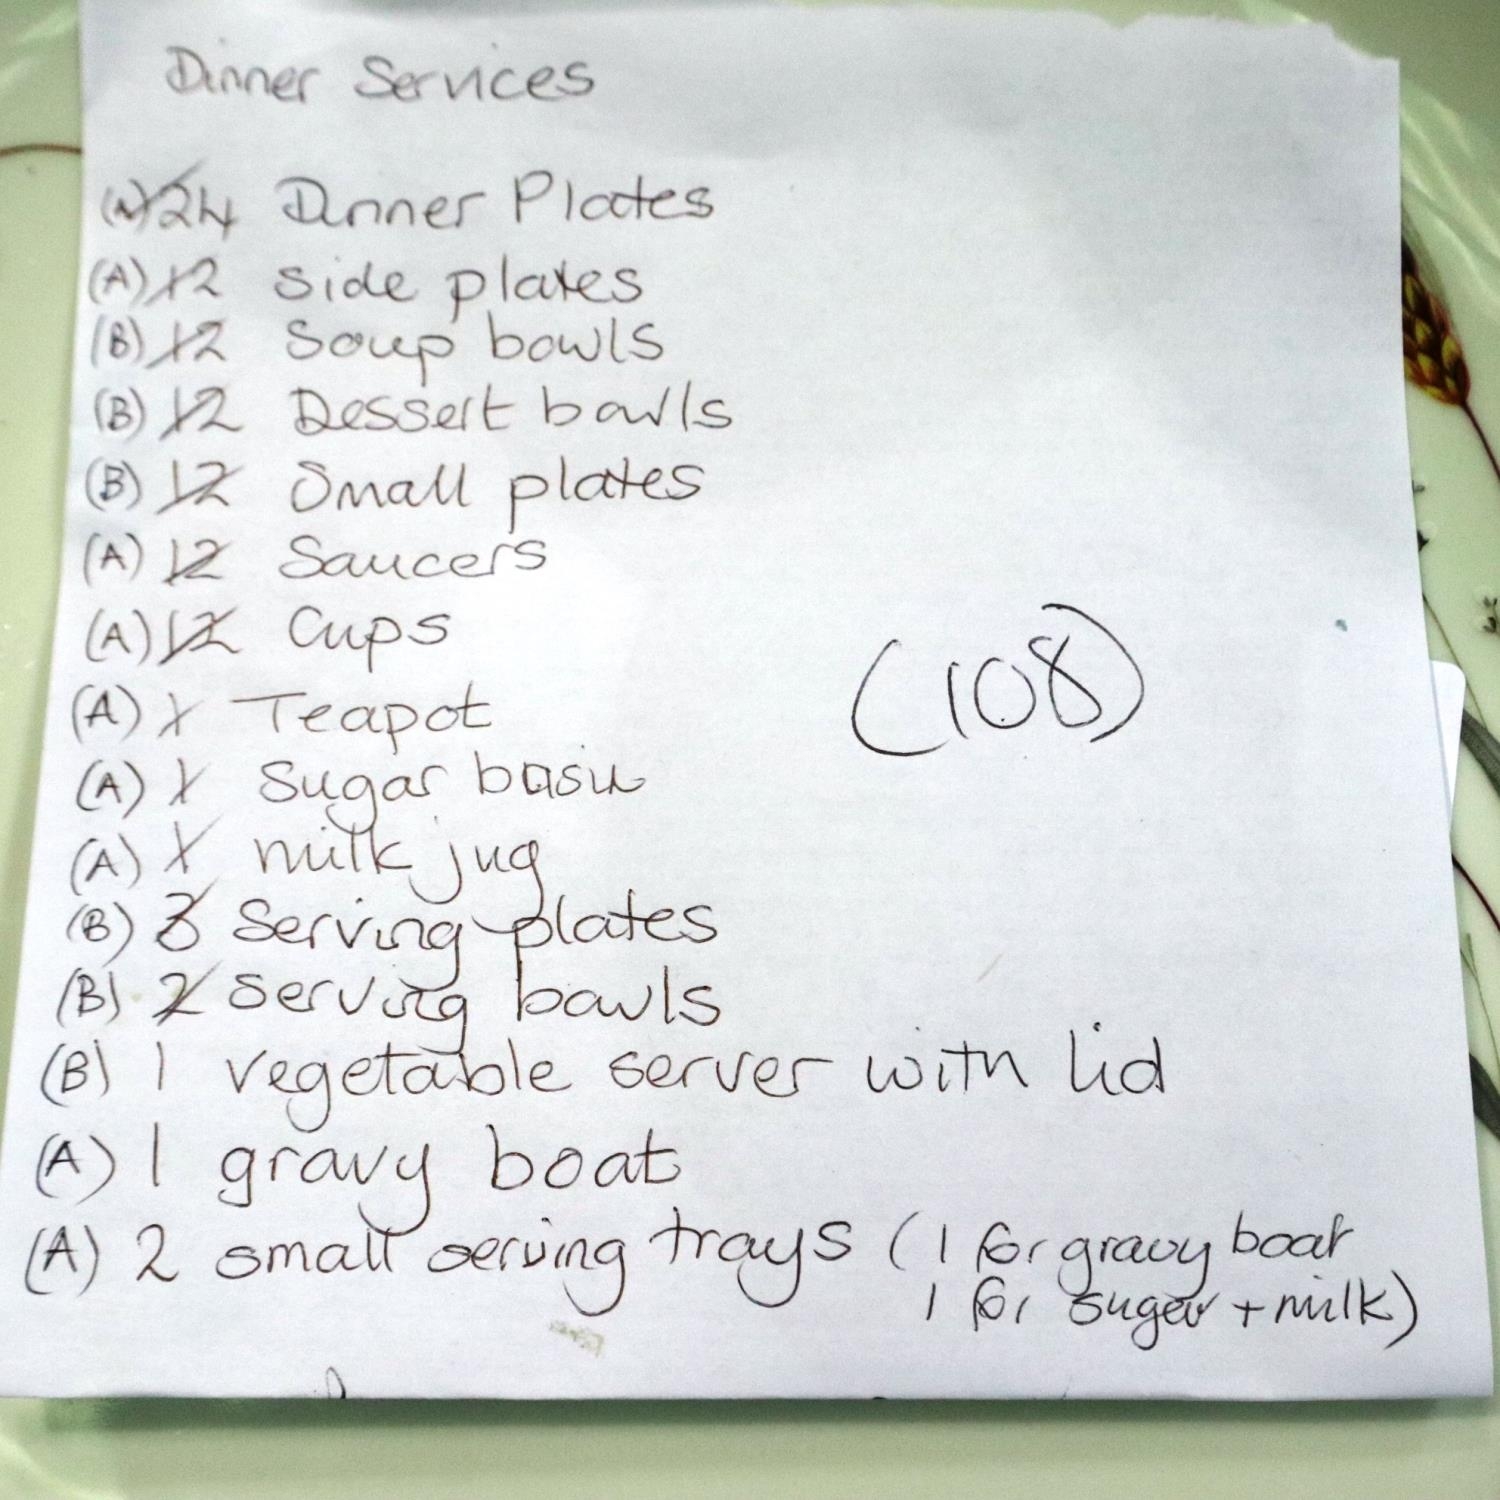 Dinner Services
24 Dinner Plates
(A) 12 side plates
(B) 12 Soup bowls
(B) 12 Dessert bowls
(B) 12 Small plates
(A) 12 Saucers
(A) 12 Cups
(108)
(A) 1 Teapot
(A) 1 Sugar basin
(A) 1 milk jug
(B) 3 Serving plates
(B) 2 Serving bowls
(B) 1 vegetable server with lid
(A) 1 gravy boat
(A) 2 small serving trays (1 for gravy boat
1 for sugar + milk)